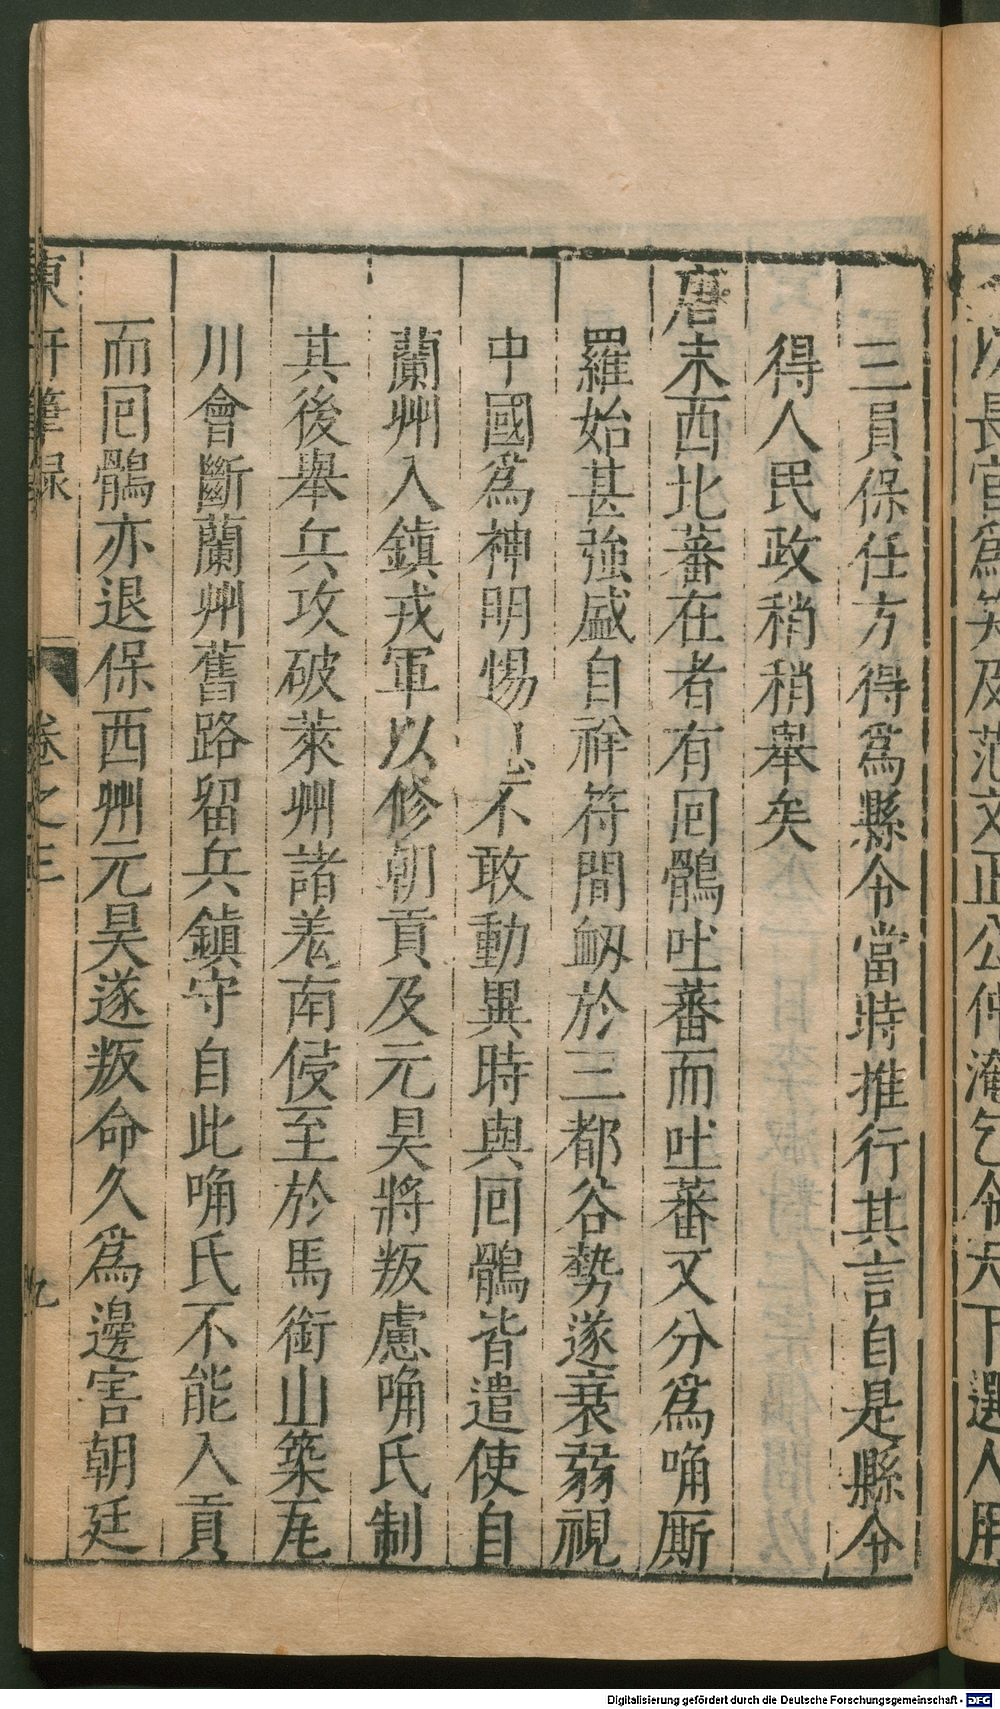 以長官爲筭及范文正公仲淹乞令天下選人用
三員保任方得爲縣令當時推行其言自是縣令
得人民政稍稍舉矣
唐末西北蕃在者有囘鶻吐蕃而吐蕃又分爲唃厮
羅始甚強盛自祥符間衂於三都谷勢遂衰弱視
中國爲神明惕不敢動異時與囘鶻皆遣使自
蘭州入鎮戎軍以修朝貢及元昊將叛慮唃氏制
其後舉兵攻破萊州諸羌南侵至於馬銜山築瓦
川會斷蘭州舊路留兵鎮守自此唃氏不能入貢
而囘鶻亦退保西州元昊遂叛命久爲邊害朝廷
東軒筆録 卷之三 九
Digitalisierung gefördert durch die Deutsche Forschungsgemeinschaft - DFG